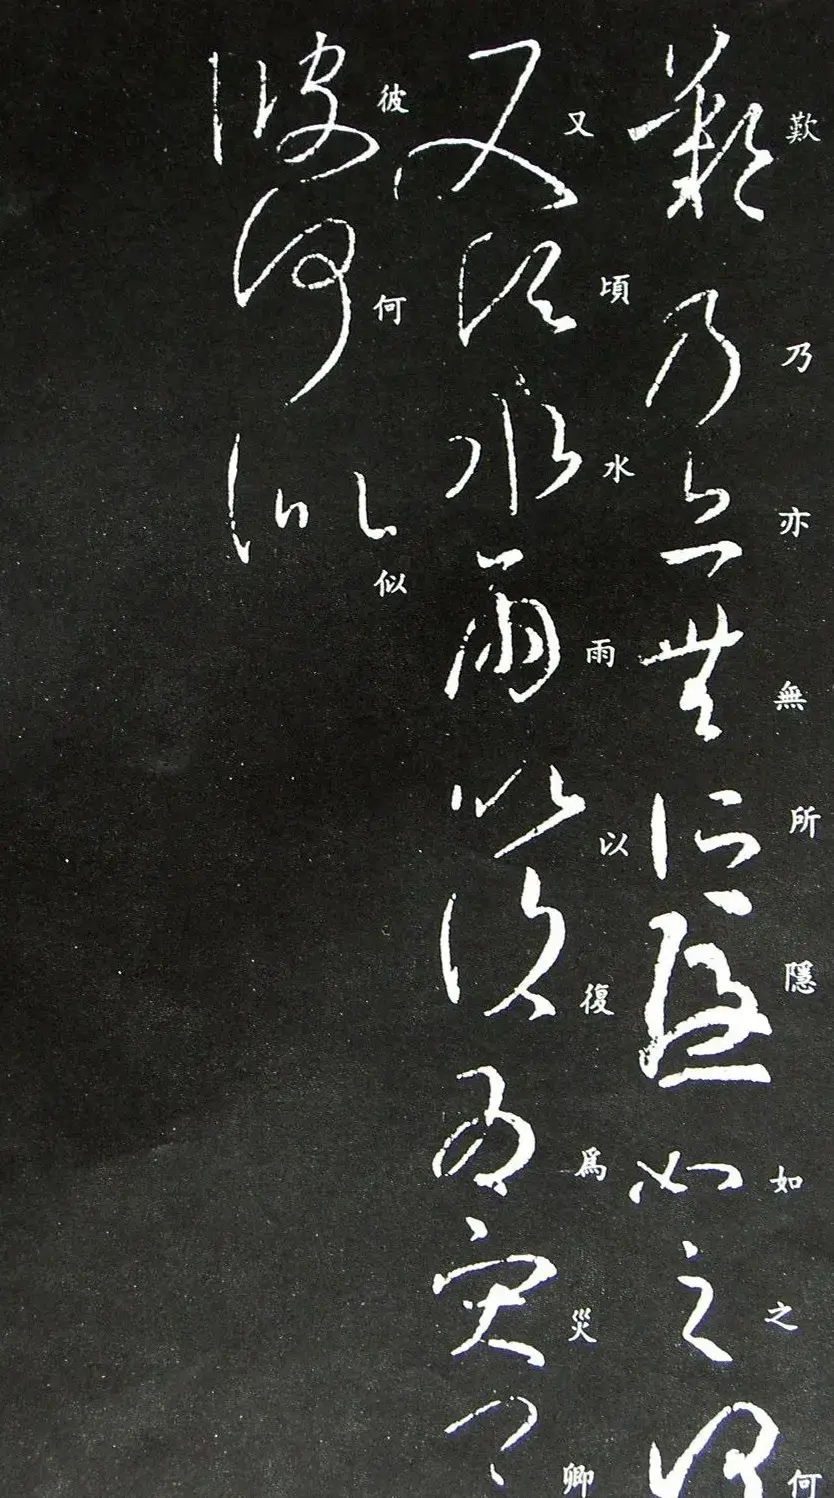 歎乃亦無所隱如之何
又頃水雨以復為災卿
彼何似